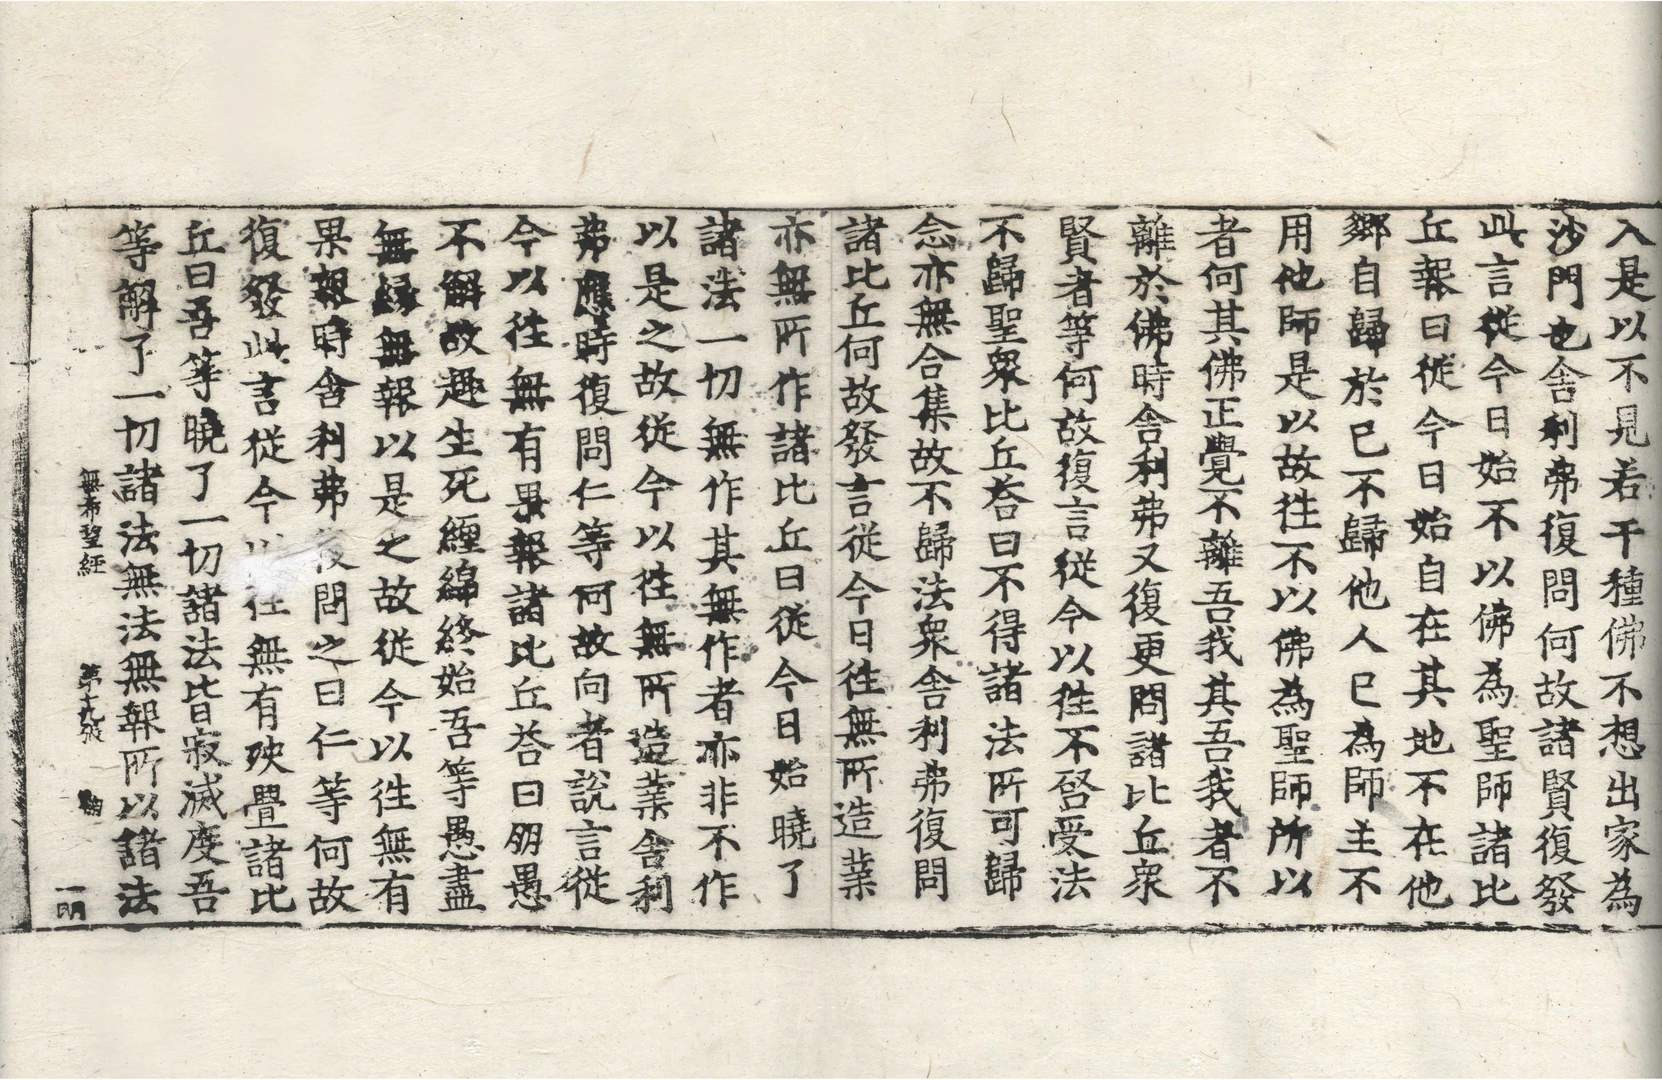 入是以不見若干種佛不想出家為
沙門也舍利弗復問何故諸賢復發
此言從今日始不以佛為聖師諸比
丘報曰從今日始自在其地不在他
鄉自歸於已不歸他人已為師主不
用他師是以故往不以佛為聖師所以
者何其佛正覺不離吾我其吾我者不
離於佛時舍利弗又復更問諸比丘眾
賢者等何故復言從今以往不啓受法
不歸聖眾比丘荅曰不得諸法所可歸
念亦無合集故不歸法眾舍利弗復問
諸比丘何故發言從今日往無所造業
亦無所作諸比丘曰從今日始曉了
諸法一切無作其無作者亦非不作
以是之故從今以往無所造業舍利
弗應時復問仁等何故向者說言從
今以往無有果報諸比丘荅曰朙愚
不解故趣生死纏綿終始吾等愚盡
無緣無報以是之故從今以往無有
果報時舍利弗復問之曰仁等何故
復發此言從今以往無有殃疊諸比
丘曰吾等曉了一切諸法皆寂滅度吾
等解了一切諸法無法無報所以諸法
無希聖經 第十九張
一明